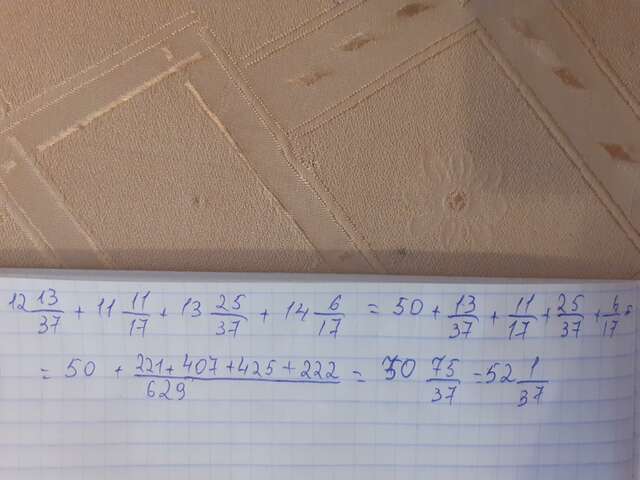 12 13/37 + 11 11/17 + 13 25/37 + 14 6/17 = 50 + 13/37 + 11/17 + 25/37 + 6/17 =
= 50 + (221 + 407 + 425 + 222)/629 = 50 75/37 = 52 1/37